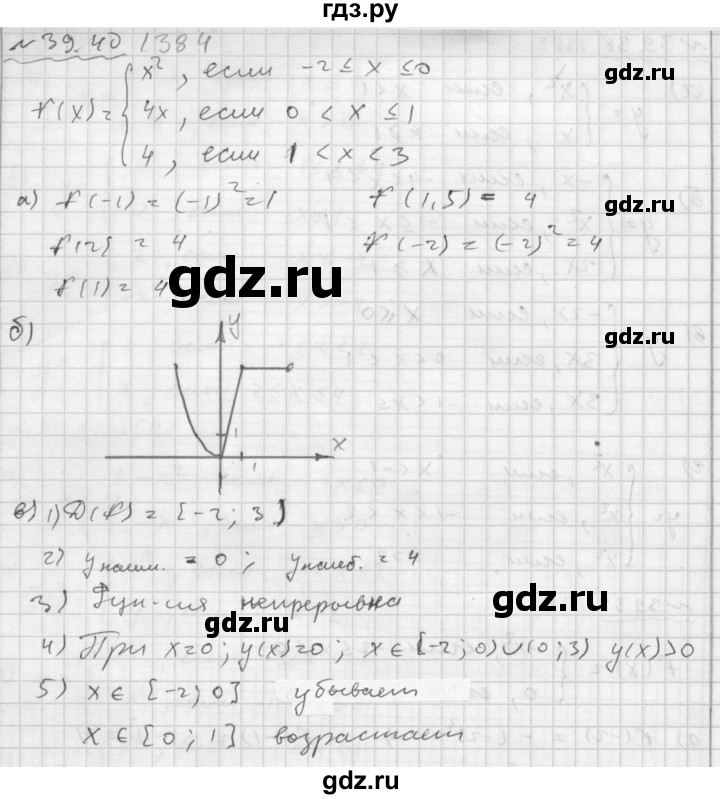 гдз.ру
№39.40 1384
f(x)= { x², если -2 ≤ x ≤ 0
4x, если 0 < x ≤ 1
4, если 1 < x < 3
gdz.ru
gdz.ru
а) f(-1) = (-1)² = 1 f(1,5) = 4
gdz.ru
f(2) = 4 f(-2) = (-2)² = 4
f(1) = 4
gdz.ru
б)
y
gdz.ru
1
x
1
в) 1) D(f) = [-2; 3)
2) y наим. = 0; y наиб. = 4
3) Фун-ия непрерывна
gdz.ru
gdz.ru
4) При x=0; y(x)=0; x ∈ [-2; 0) ∪ (0; 3) y(x)>0
5) x ∈ [-2; 0] убывает
x ∈ [0; 1] возрастает
gdz.ru
gdz.ru